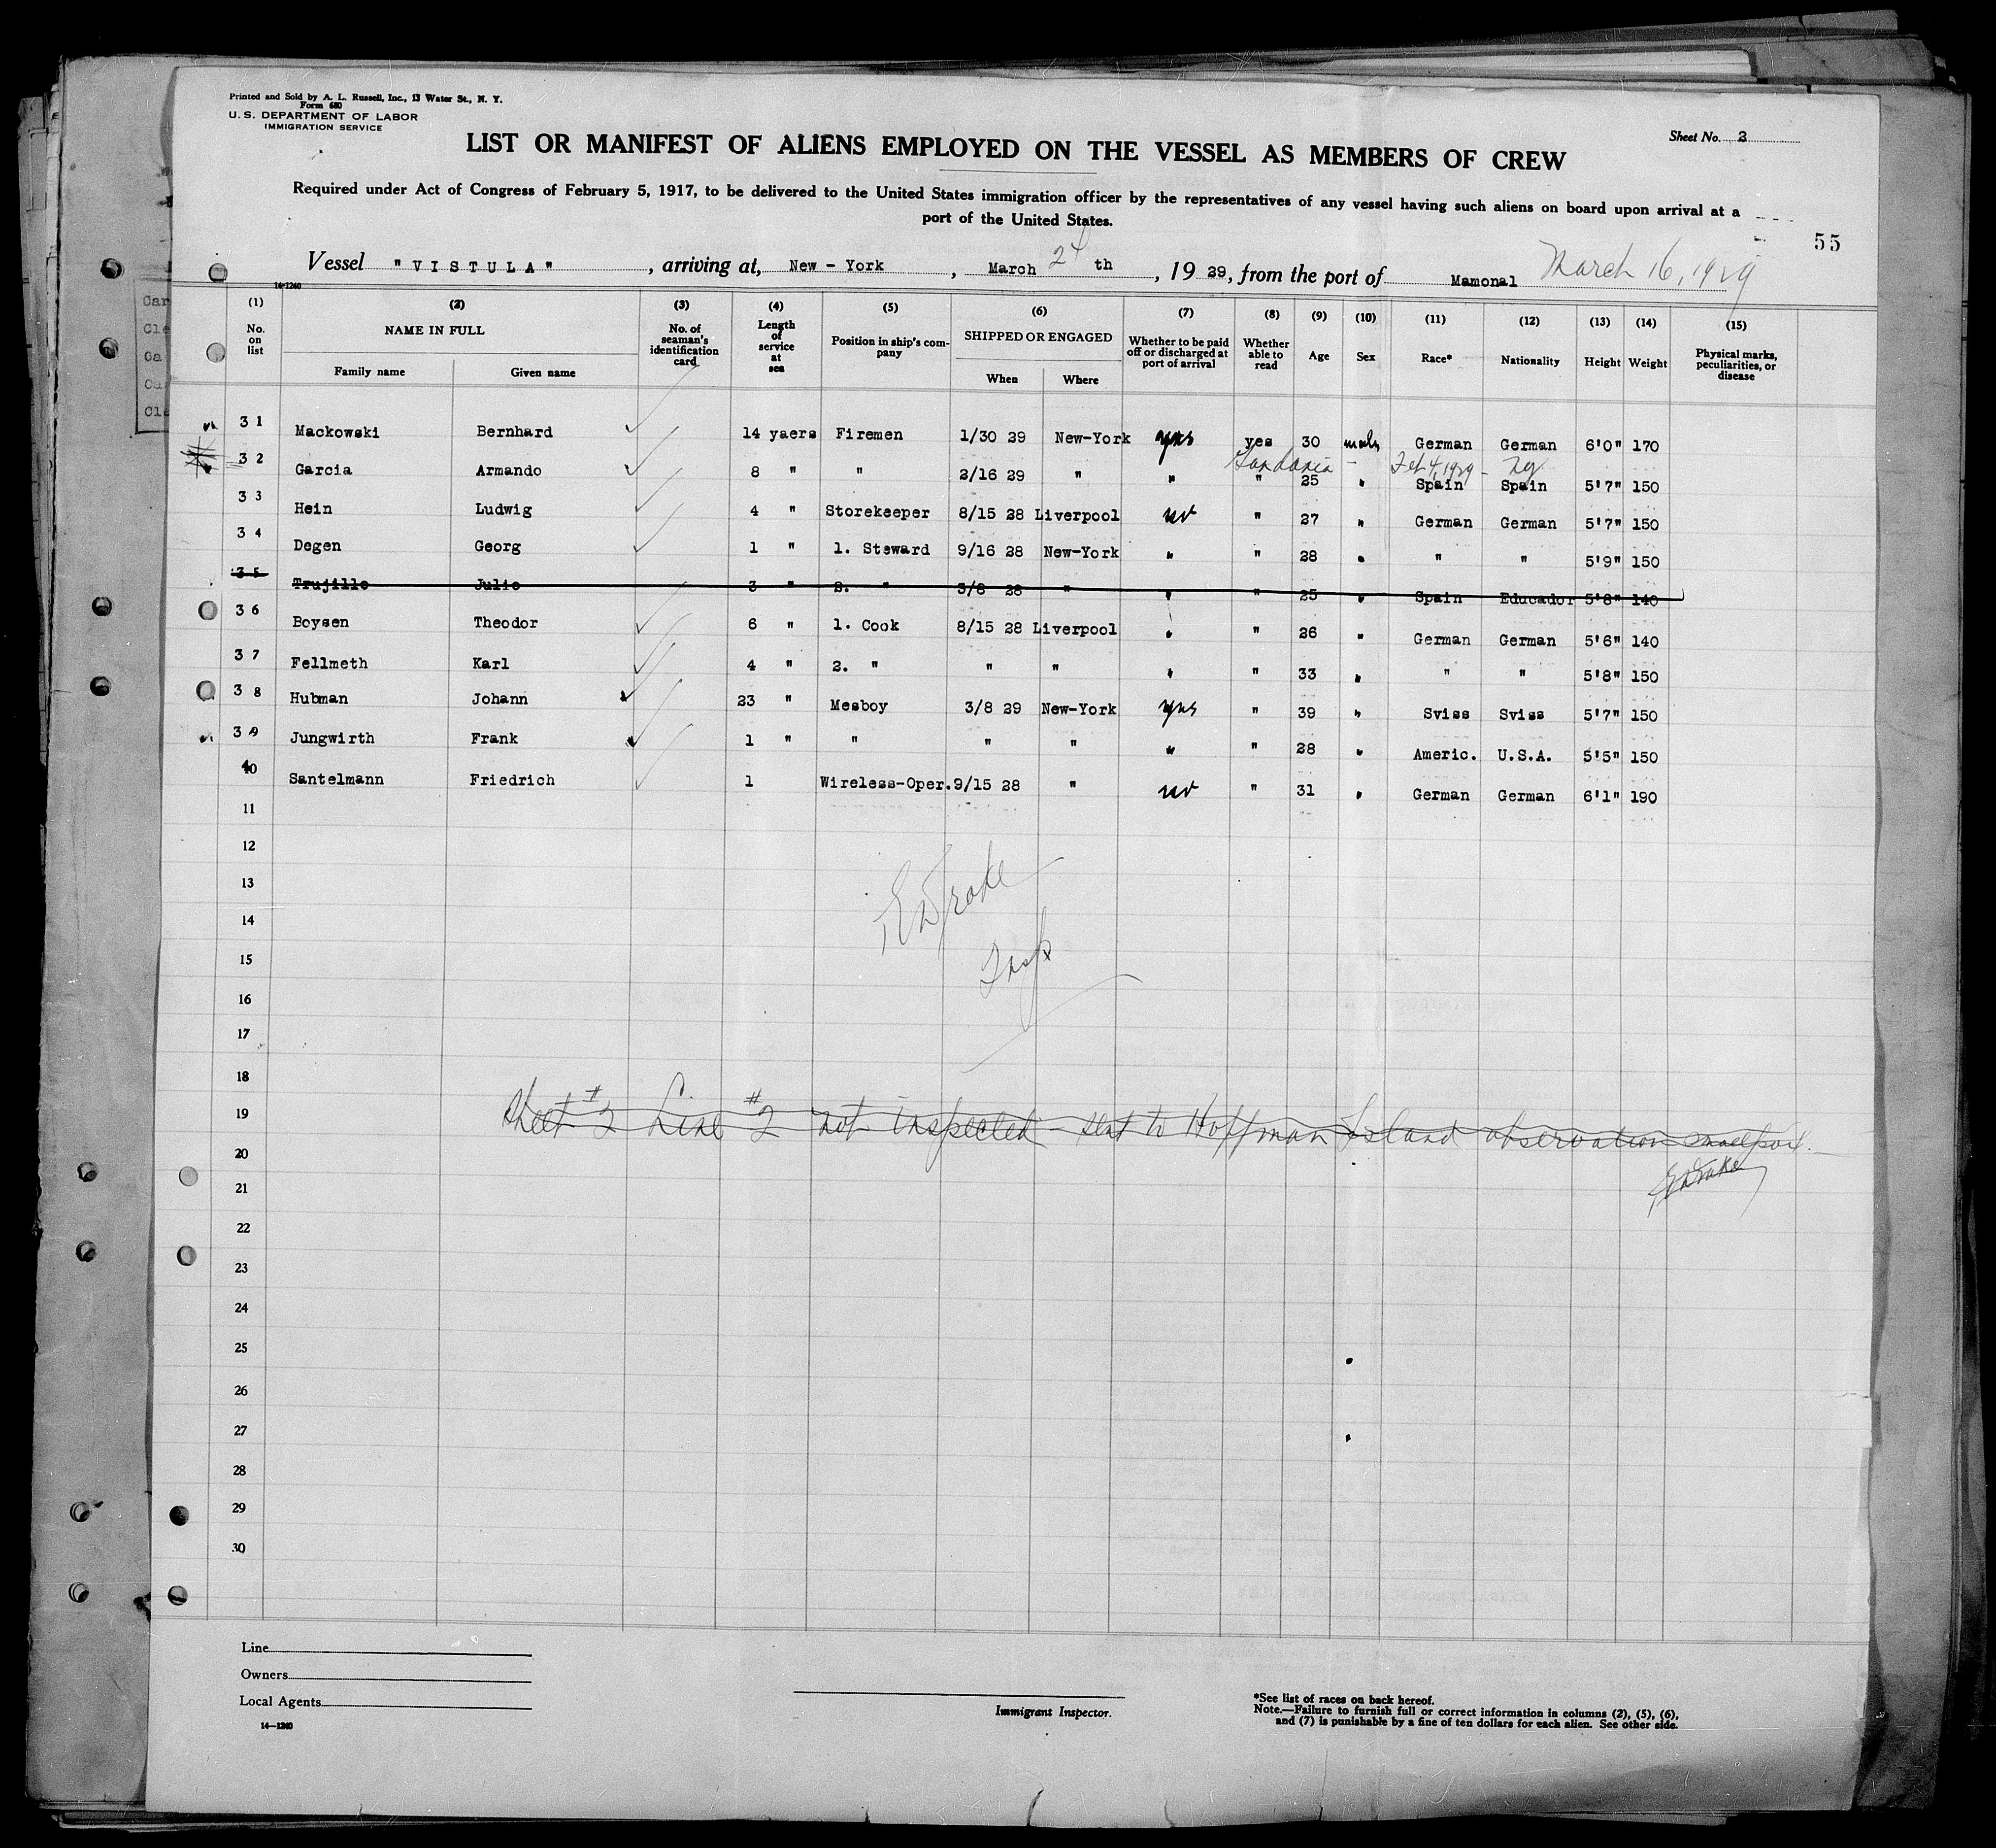 Printed and Sold by A. L. Russell, Inc., 13 Water St., N. Y.
Form 680
U. S. DEPARTMENT OF LABOR
IMMIGRATION SERVICE
Sheet No. 2
LIST OR MANIFEST OF ALIENS EMPLOYED ON THE VESSEL AS MEMBERS OF CREW
Required under Act of Congress of February 5, 1917, to be delivered to the United States immigration officer by the representatives of any vessel having such aliens on board upon arrival at a
port of the United States.
55
Vessel "VISTULA", arriving at, New - York, March 24 th, 19 29, from the port of Mamonal March 16, 1929
14-1240
(1) (2) (3) (4) (5) (6) (7) (8) (9) (10) (11) (12) (13) (14) (15)
No. on list NAME IN FULL Family name Given name No. of seaman's identification card Length of service at sea Position in ship's company SHIPPED OR ENGAGED When Where Whether to be paid off or discharged at port of arrival Whether able to read Age Sex Race* Nationality Height Weight Physical marks, peculiarities, or disease
31 Mackowski Bernhard 14 yaers Firemen 1/30 29 New-York yes yes 30 male German German 6'0" 170
Feb 4, 1929 - Ny
32 Garcia Armando 8 " " 2/16 29 " " " 25 " Spain Spain 5'7" 150
33 Hein Ludwig 4 " Storekeeper 8/15 28 Liverpool no " 27 " German German 5'7" 150
34 Degen Georg 1 " 1. Steward 9/16 28 New-York " " 28 " " " 5'9" 150
35 Trujillo Julio 3 " 2. " 3/8 28 " " " 25 " Spain Educador 5'8" 140
36 Boysen Theodor 6 " 1. Cook 8/15 28 Liverpool " " 26 " German German 5'6" 140
37 Fellmeth Karl 4 " 2. " " " " " 33 " " " 5'8" 150
38 Hubman Johann 23 " Mesboy 3/8 29 New-York yes " 39 " Sviss Sviss 5'7" 150
39 Jungwirth Frank 1 " " " " " " 28 " Americ. U.S.A. 5'5" 150
40 Santelmann Friedrich 1 Wireless-Oper. 9/15 28 " no " 31 " German German 6'1" 190
11
12
13 E Drake
14
15 Insp
16
17
18
19 Sheet #2 Line #2 not inspected - sent to Hoffman Island observation smallpox.
20
21 E Drake
22
23
24
25
26
27
28
29
30
Line
Owners
Local Agents
14-1240
Immigrant Inspector.
*See list of races on back hereof.
Note.—Failure to furnish full or correct information in columns (2), (5), (6),
and (7) is punishable by a fine of ten dollars for each alien. See other side.